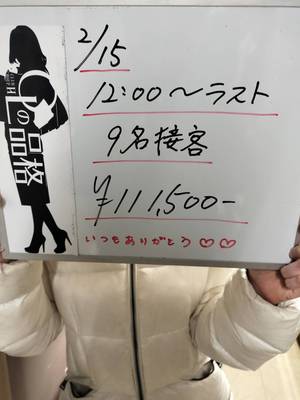 2/15
12:00～ラスト
9名接客
¥111,500-
いつもありがとう♡♡
OLの品格